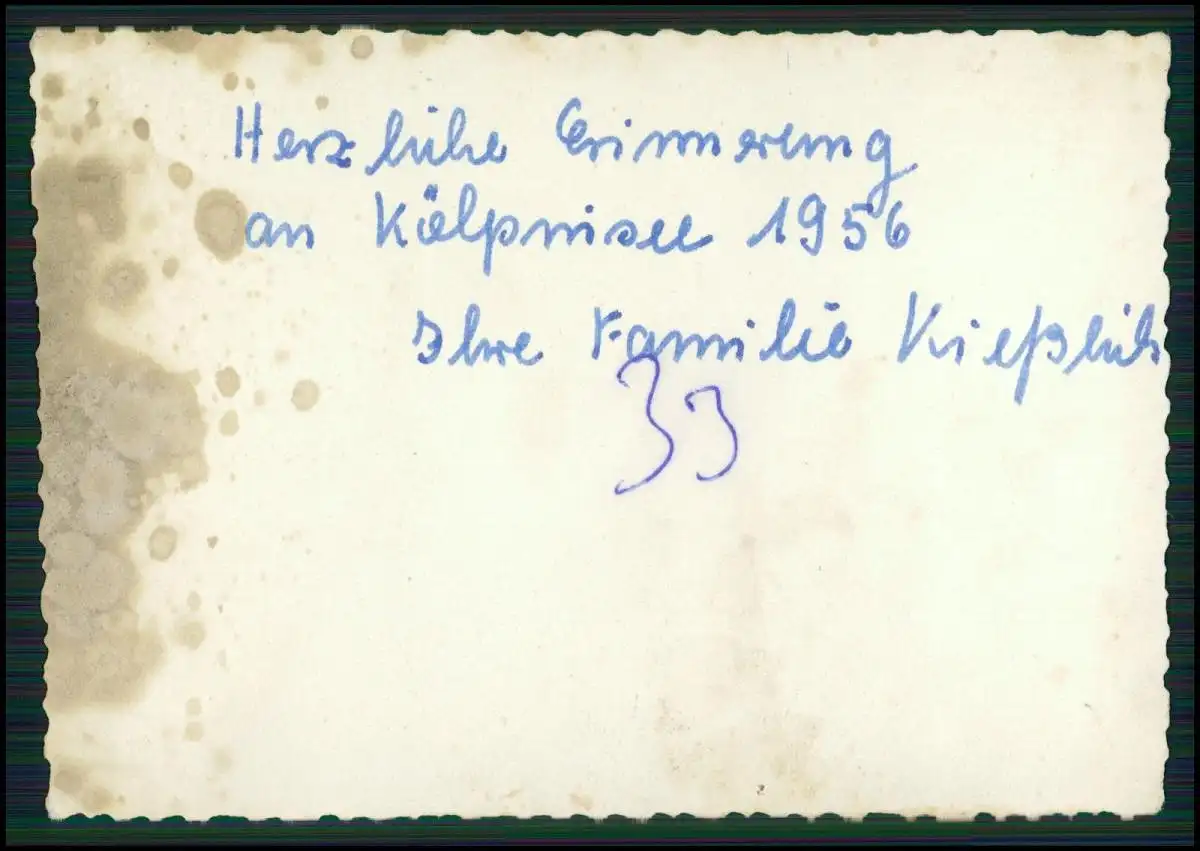 Herzliche Erinnerung
an Kölpinsee 1956
Ihre Familie Kießlich
33